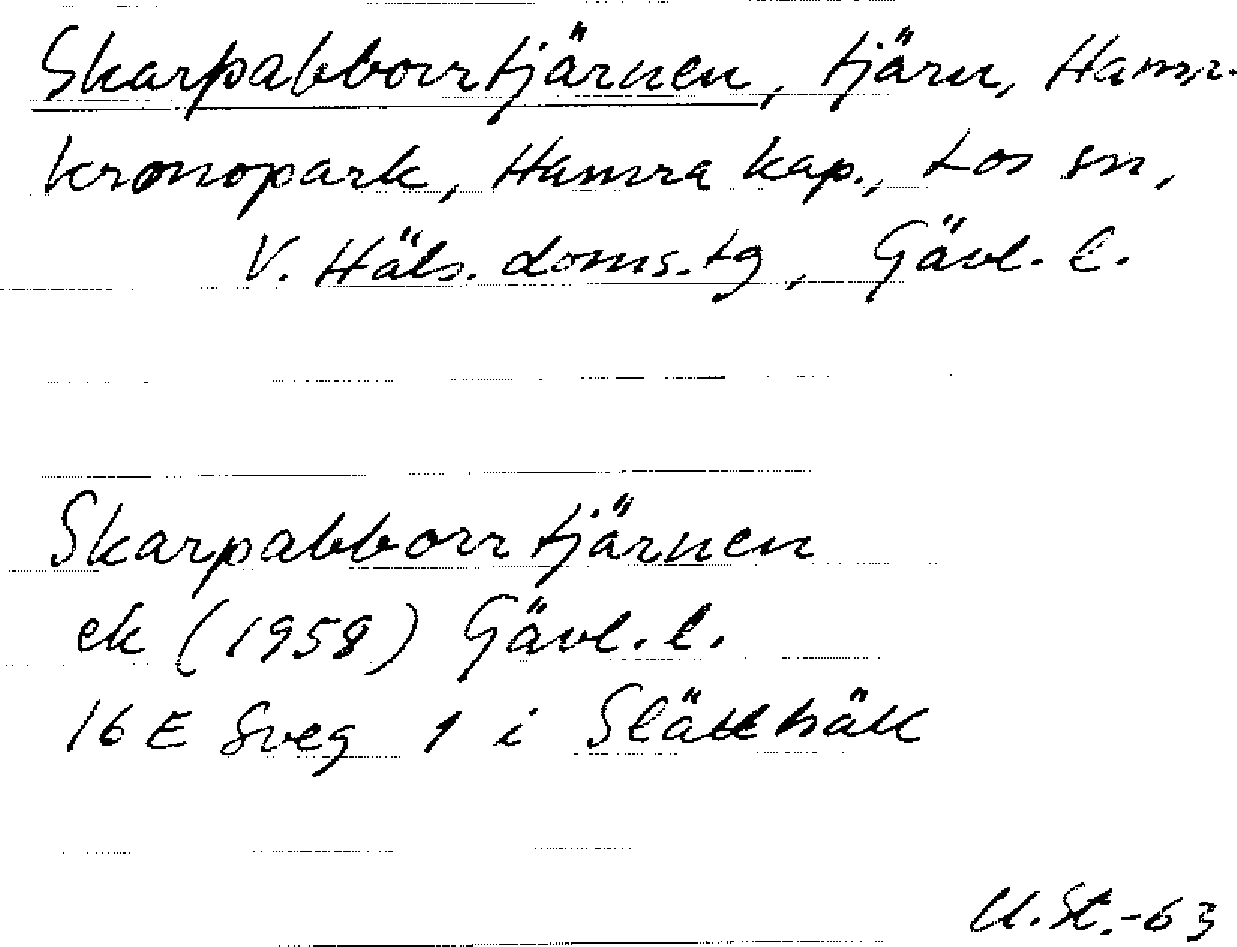 Skarpabborrtjärnen, tjärn, Hamr.
kronopark, Hamra kap., Los sn,
V. Häls. doms.tg, Gävl. l.
Skarpabborrtjärnen
ek (1958) Gävl. l.
16 E Sveg 1 i Slätthäll
U.St.-63